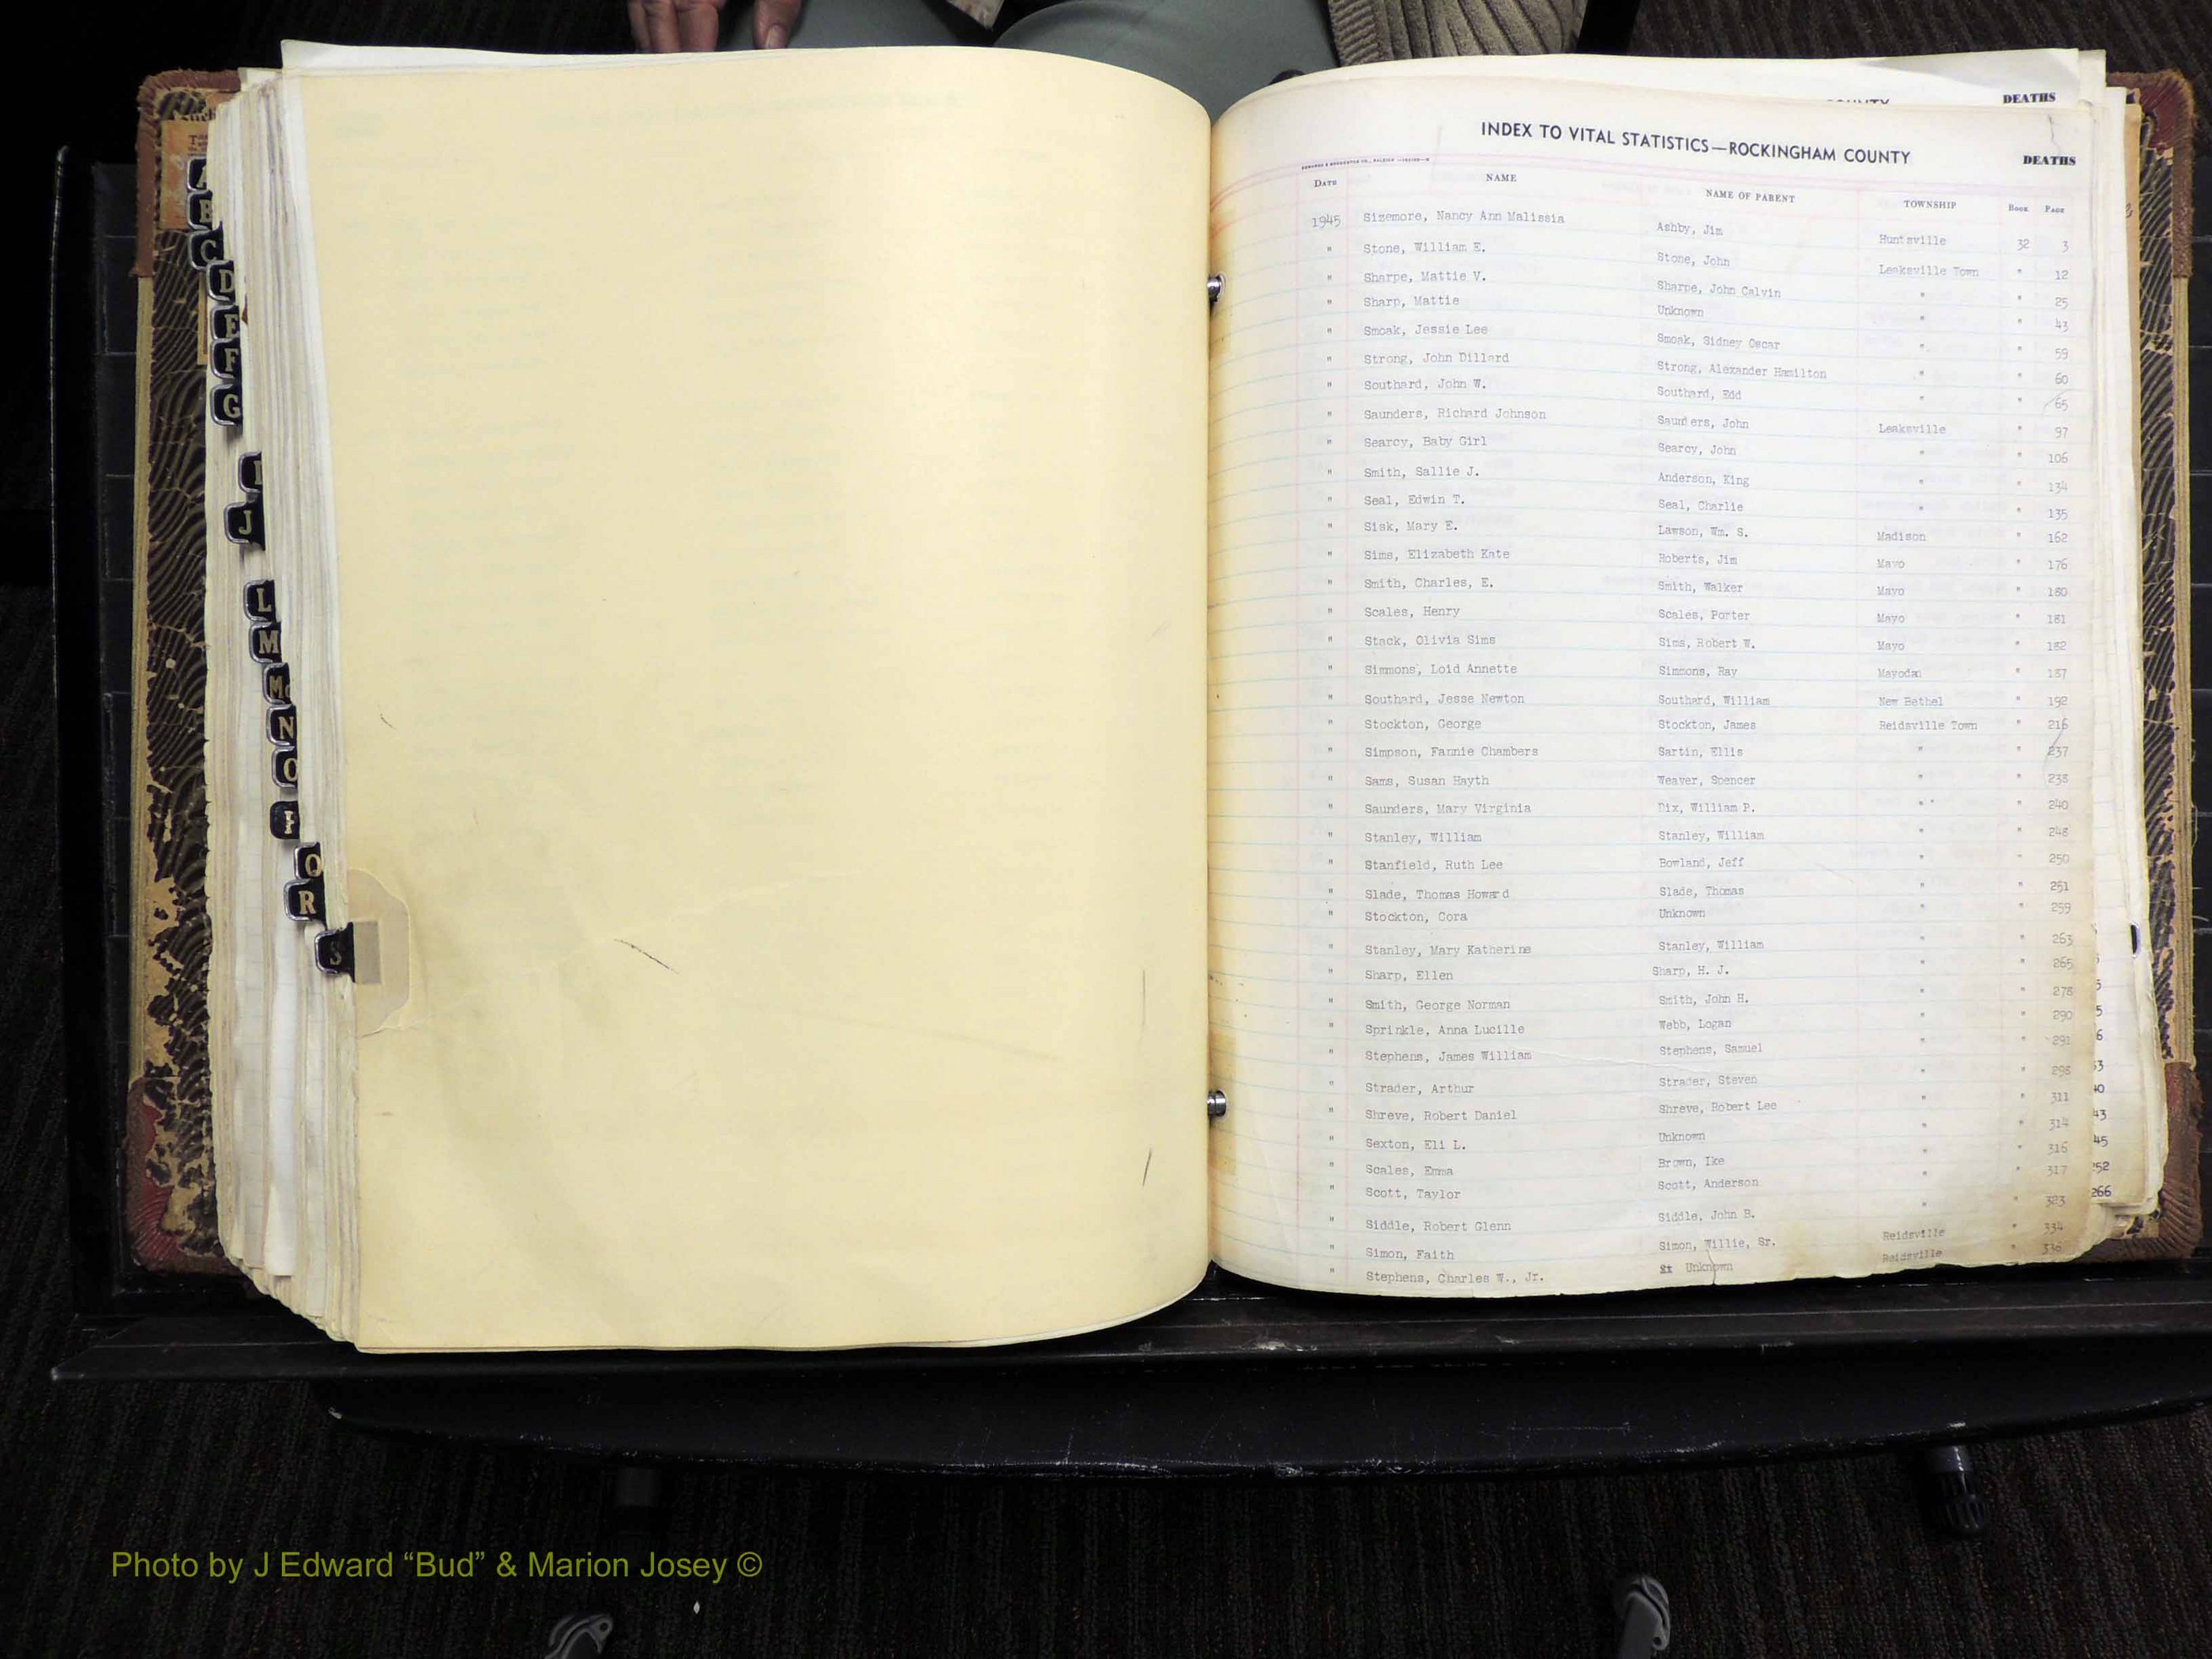 COUNTY DEATHS
INDEX TO VITAL STATISTICS—ROCKINGHAM COUNTY
DEATHS
DATE NAME NAME OF PARENT TOWNSHIP BOOK PAGE
1945 Sizemore, Nancy Ann Malissia Ashby, Jim Huntsville 32 3
" Stone, William E. Stone, John Leaksville Town " 12
" Sharpe, Mattie V. Sharpe, John Calvin " " 25
" Sharp, Mattie Unknown " " 43
" Smoak, Jessie Lee Smoak, Sidney Oscar " " 59
" Strong, John Dillard Strong, Alexander Hamilton " " 60
" Southard, John W. Southard, Edd " " 65
" Saunders, Richard Johnson Saunders, John Leaksville " 97
" Searcy, Baby Girl Searcy, John " " 106
" Smith, Sallie J. Anderson, King " " 134
" Seal, Edwin T. Seal, Charlie " " 135
" Sisk, Mary E. Lawson, Wm. S. Madison " 162
" Sims, Elizabeth Kate Roberts, Jim Mayo " 176
" Smith, Charles, E. Smith, Walker Mayo " 180
" Scales, Henry Scales, Porter Mayo " 181
" Stack, Olivia Sims Sims, Robert W. Mayo " 182
" Simmons, Loid Annette Simmons, Ray Mayodan " 187
" Southard, Jesse Newton Southard, William New Bethel " 192
" Stockton, George Stockton, James Reidsville Town " 216
" Simpson, Fannie Chambers Sartin, Ellis " " 237
" Sams, Susan Hayth Weaver, Spencer " " 238
" Saunders, Mary Virginia Dix, William P. " " 240
" Stanley, William Stanley, William " " 248
" Stanfield, Ruth Lee Bowland, Jeff " " 250
" Slade, Thomas Howard Slade, Thomas " " 251
" Stockton, Cora Unknown " " 259
" Stanley, Mary Katherine Stanley, William " " 263
" Sharp, Ellen Sharp, H. J. " " 265
" Smith, George Norman Smith, John H. " " 278
" Sprinkle, Anna Lucille Webb, Logan " " 290
" Stephens, James William Stephens, Samuel " " 291
" Strader, Arthur Strader, Steven " " 298
" Shreve, Robert Daniel Shreve, Robert Lee " " 311
" Sexton, Eli L. Unknown " " 314
" Scales, Emma Brown, Ike " " 316
" Scott, Taylor Scott, Anderson " " 317
" Siddle, Robert Glenn Siddle, John B. " " 323
" Simon, Faith Simon, Willie, Sr. Reidsville " 334
" Stephens, Charles W., Jr. Unknown Reidsville "
A
B
C
D
E
F
G
I
J
L
M
Mc
N
O
P
Q
R
S
Photo by J Edward “Bud” & Marion Josey ©